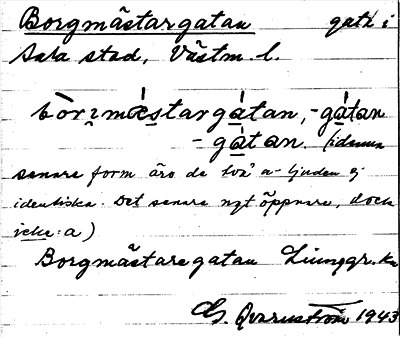 Borgmästargatan gata i
Sala stad, Västm. l.
bòrʒmæ̀stargàtan, -gàtan
-gàtan. (i denna
senare form äro de två a-ljuden ej
identiska. Det senare ngt öppnare, dock
icke: a)
Borgmästaregatan Ljunggr. ka
G. Qvarnström 1943